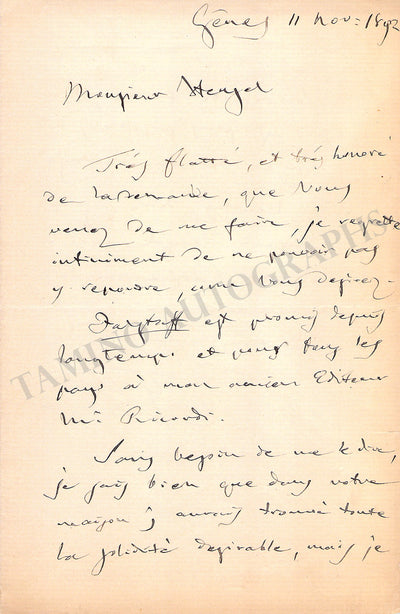 Gênes 11 Nov: 1892
Monsieur Heugel
Très flatté, et très honoré
de la demande, que Vous
venez de me faire, je regrette
infiniment de ne pouvoir pas
y repondre, comme Vous desirez-
Falstaff est promis depuis
longtemps et pour tous les
pays à mon ancien Editeur
Mr: Ricordi.
Sans besoin de me le dire,
je sais bien que dans votre
maison j'aurais trouvé toute
la solidité desirable, mais je
TAMINO AUTOGRAPHS